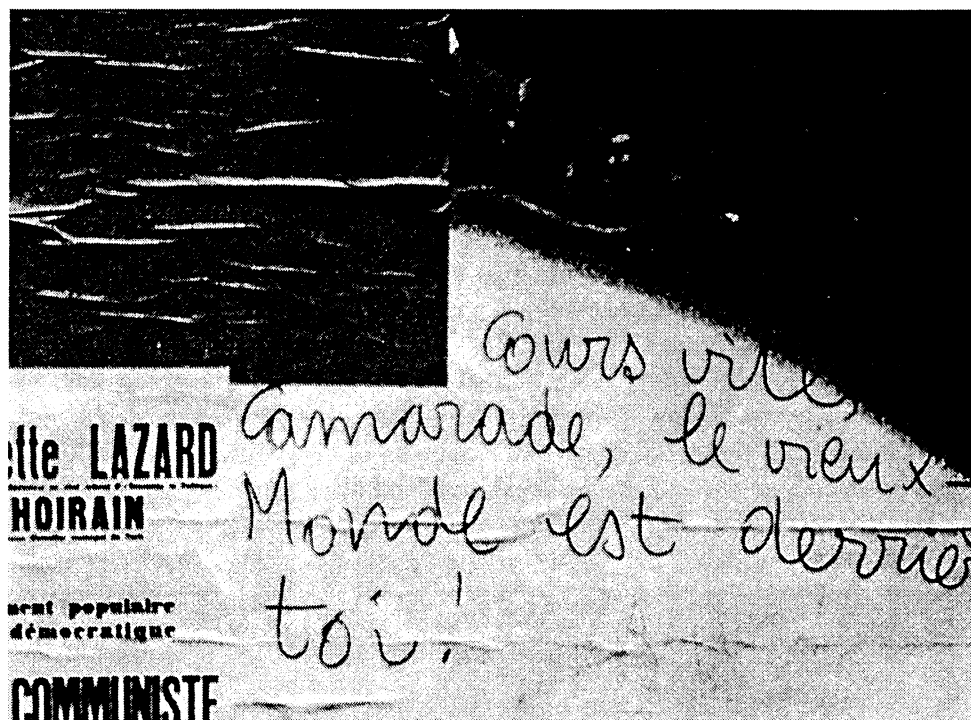 Cours vite,
Camarade, le vieux-
Monde est derriè
toi!
ette LAZARD
HOIRAIN
ment populaire
démocratique
COMMUNISTE